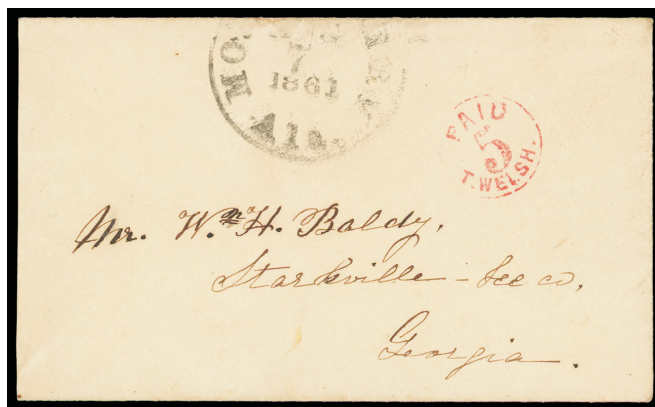 7
1861
Ala.
PAID
5
T. WELSH.
Mr. Wm. H. Baldy,
Starksville - Lee co,
Georgia.